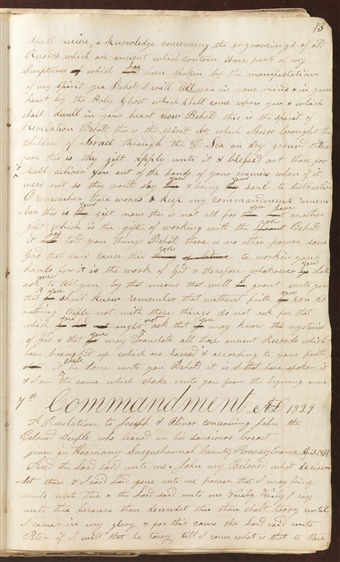 13
shall recieve a knowledge concerning the engravings of old
Records which are ancient which contain those parts of my
Scriptures of which has been spoken by the manifestation
of my Spirit yea Behold I will tell you in your mind & in your
heart by the Holy Ghost which shall come upon you & which
shall dwell in your heart now Behold this is the spirit of
revelation Behold this is the spirit by which Moses brought the
children of Israel through the red Sea on dry ground
fore this is thy gift apply unto it & blessed art thou for
shall deliver you out of the hands of your enemies when if it
were not so they would slay & bring your soul to distruction
O remember these words & keep my commandments remem
ber this is your gift now this is not all for another
gift which is the gift of working with the Behold
it has told you things Behold there is no other power save
God that can cause this to work in your
hands for it is the work of God & therefore whatsoever shall
ask to tell you by that means that will grant unto you
that shall know remember that without faith you can do
nothing trifle not with these things do not ask for that
which ought not ask that you may know the mysteries
of God & that you may Translate all those ancient Records which
have been hid up which are Sacred & according to your faith
shall it be done unto you Behold it is I that have spoken it
& I am the same which spoke unto you from the begining amen
7th Commandment AD 1829
A Revelation to Joseph & Oliver concerning John the
Beloved Deciple who leaned on his saviours breast
given in Harmony Susquehannah County Pennsylvania
And the Lord said unto me John my Beloved what desirest
thou & I said Lord give unto me power that I may bring
souls unto thee & the Lord said unto me Verily Verily I say
unto thee because thou desiredst this thou shalt tarry untill
I come in my glory & for this cause the Lord said unto
Peter if I will that he tarry till I come what is that to thee